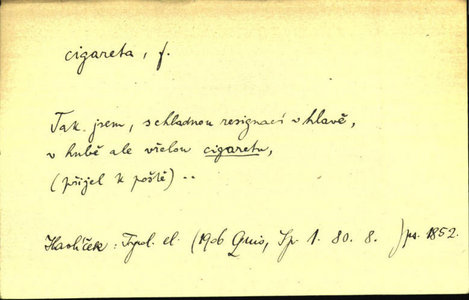 cigareta, f.
Tak jsem, s chladnou resignací v hlavě,
v hubě ale vřelou cigaretu,
(přijel k poště) ..
Havlíček: Tyrol. el. (1906 Quis, Sp. 1. 80. 8. ) ps. 1852.